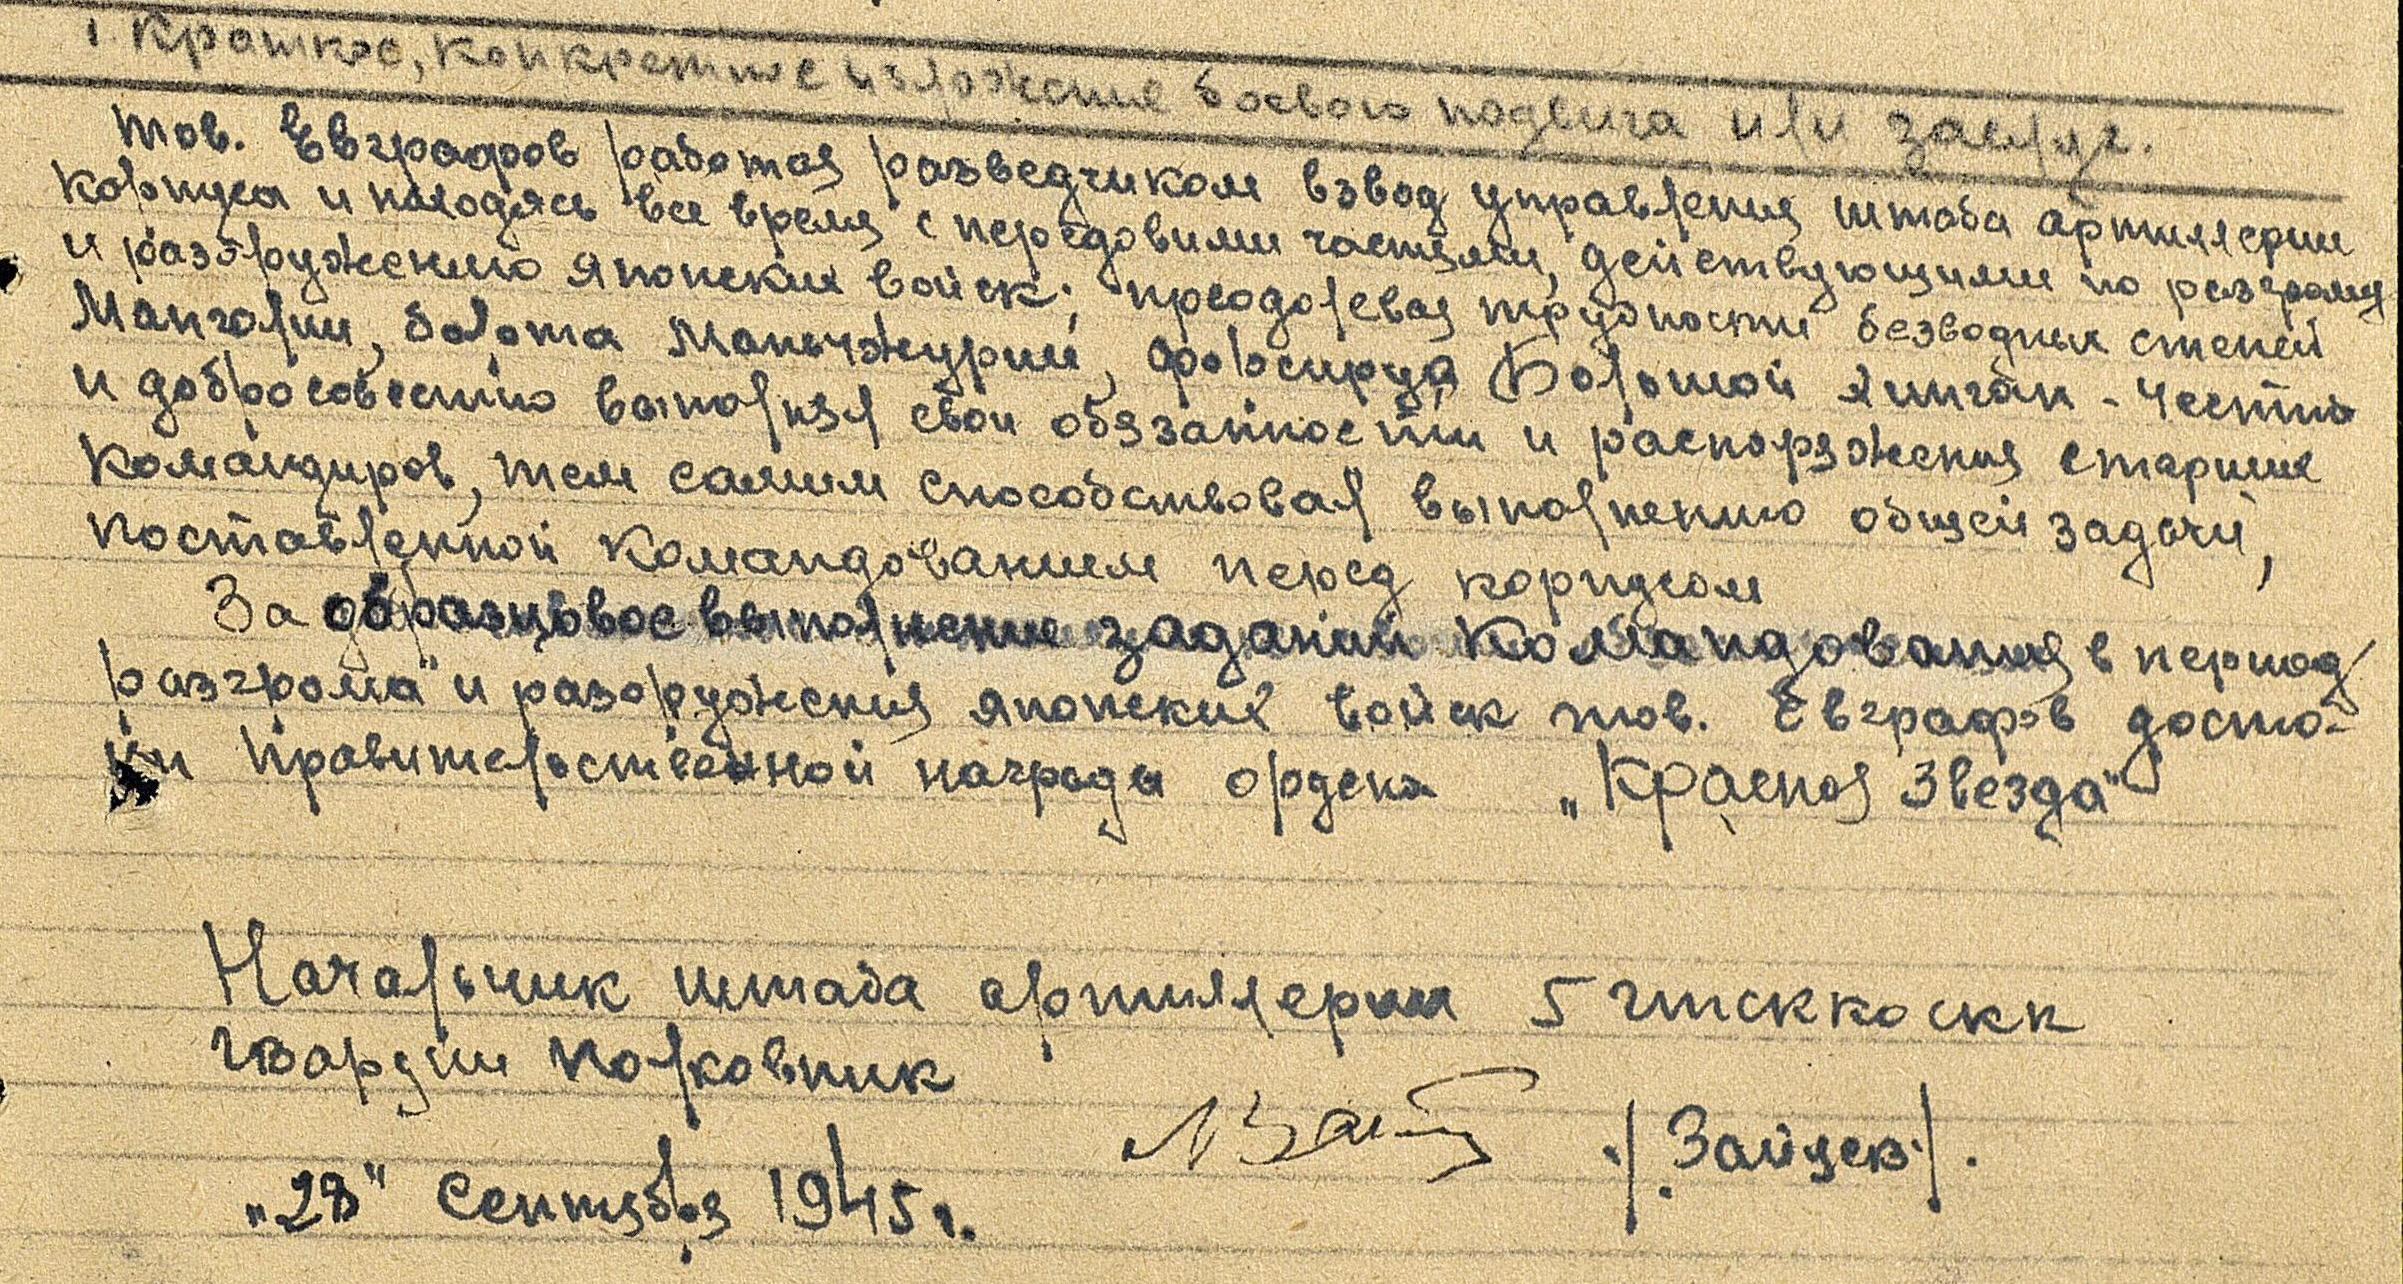 1. Краткое, конкретное изложение боевого подвига или заслуг.
Тов. Евграфов работая разведчиком взвод управления штаба артиллерии
корпуса и находясь все время с передовыми частями, действующими по разгрому
и разоружению японских войск; преодолевая трудности безводных степей
Манголии, болота Маньчжурии, форсируя Большой Хинган - честно
и добросовестно выполнял свои обязанности и распоряжения старших
командиров, тем самым способствовал выполнению общей задачи,
поставленной командованием перед корпусом
За образцовое выполнение заданий командования в период
разгрома и разоружения японских войск тов. Евграфов досто-
ин правительственной награды ордена „Красная Звезда"
Начальник штаба артиллерии 5 гтскккоскк
гвардии полковник
/Зайцев/.
„28" сентября 1945 г.